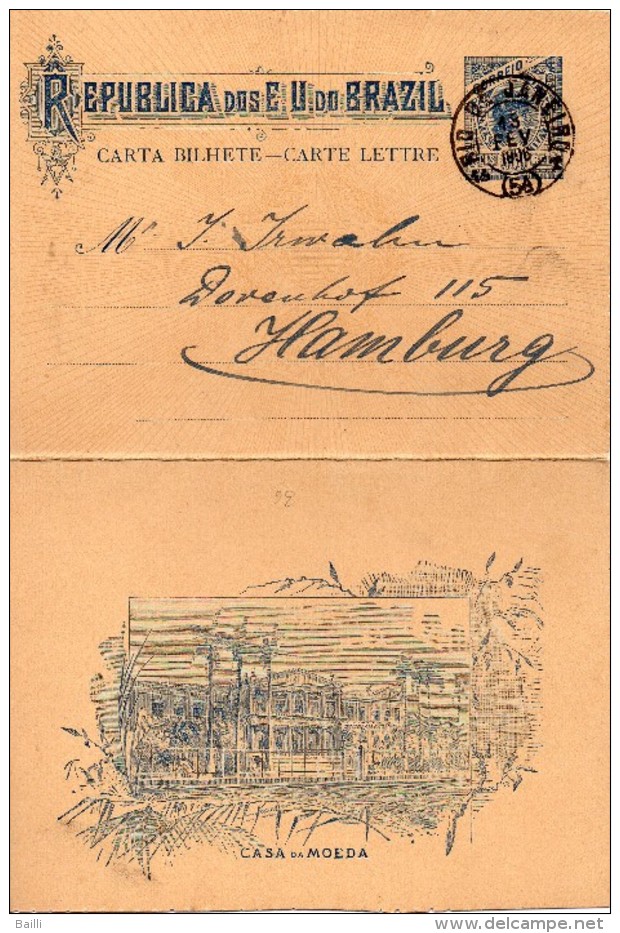 REPUBLICA DOS E. U. DO BRAZIL
CARTA BILHETE—CARTE LETTRE
RIO DE JANEIRO
FEV
(5A)
Mr J. Irwahn
Dovenhof 115
Hamburg
CASA DA MOEDA
Balli
www.delcampe.net